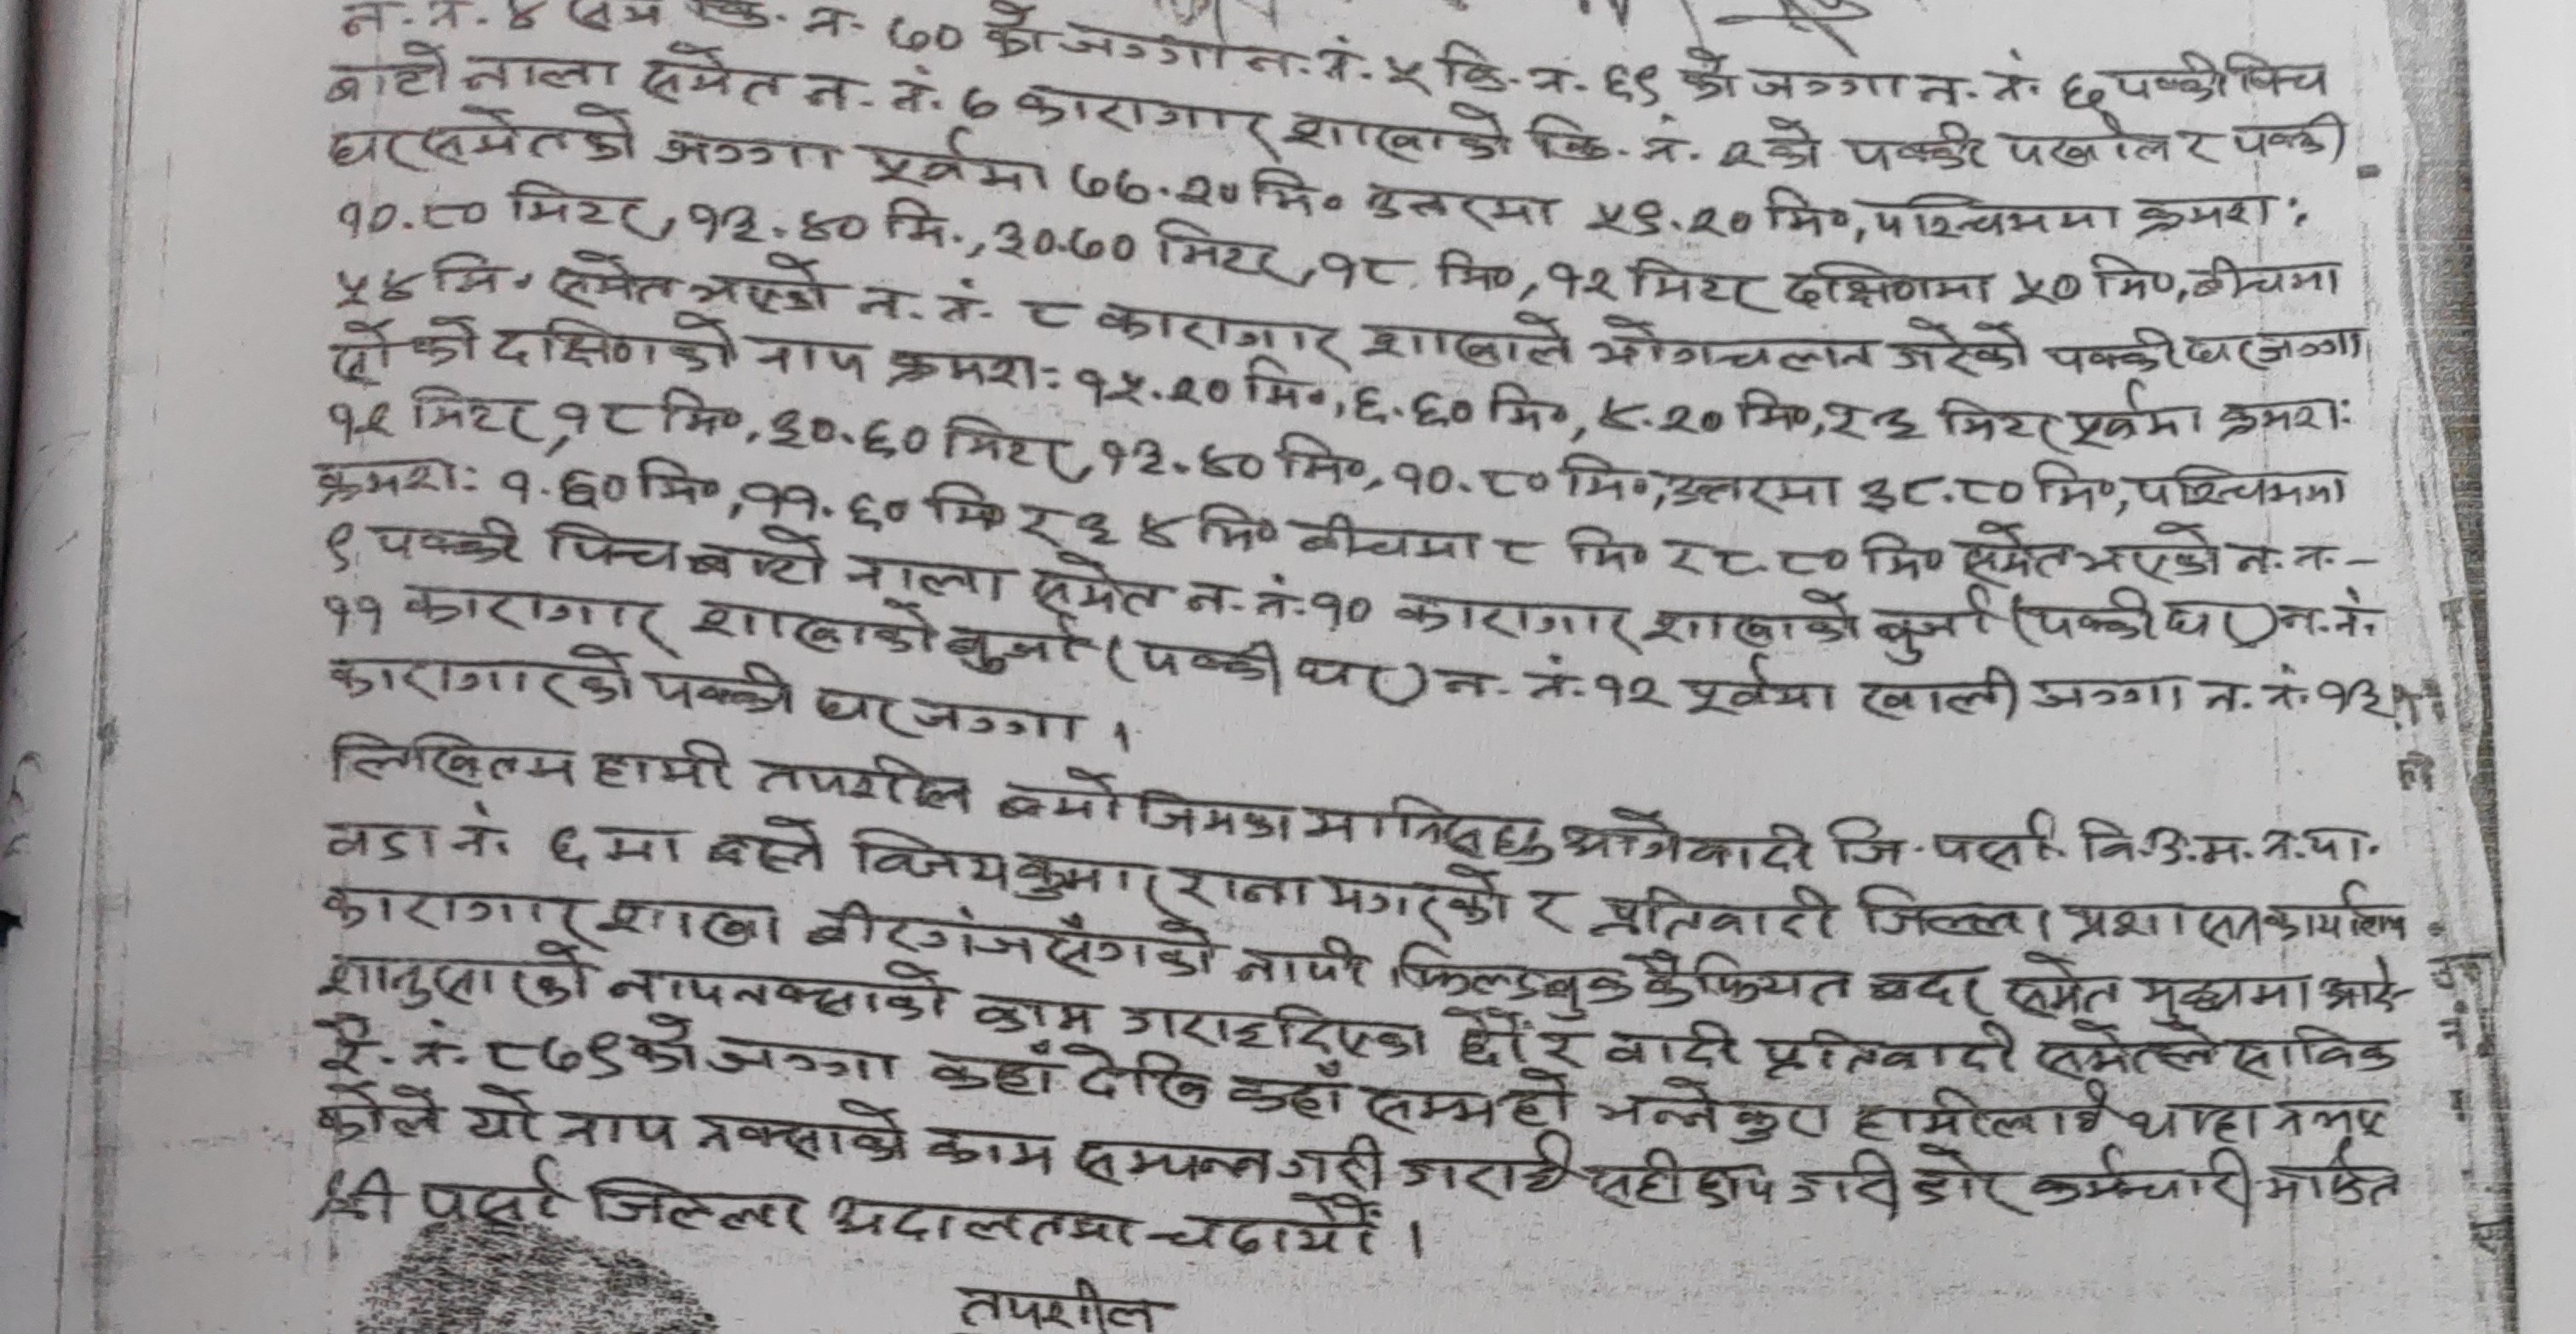 न.नं. ४ कि.नं. ७० को जग्गा न.नं. ५ कि.नं. ६९ को जग्गा न.नं. ६ पक्की पिच
बाटो नाला समेत न.नं. ७ कारागार शाखाको कि.नं. २ को पक्की पर्खाल र पक्की
घर समेतको जग्गा पूर्वमा ७७.२० मि० उत्तरमा ५९.२० मि०, पश्चिममा क्रमश:,
१०.८० मिटर, १३.४० मि., ३०.७० मिटर, १८ मि०, १२ मिटर दक्षिणमा ५० मि०, बीचमा
५४ मि. समेत भएको न.नं. ८ कारागार शाखाले भोगचलन गरेको पक्की घर जग्गा
सो को दक्षिणको नाप क्रमश: १५.२० मि०, ६.६० मि०, ४.२० मि०, २३ मिटर पूर्वमा क्रमश:
१२ मिटर, १८ मि०, ३०.६० मिटर, १३.४० मि०, १०.८० मि०, उत्तरमा ३८.८० मि०, पश्चिममा
क्रमश: १.६० मि०, ११.६० मि० र ३४ मि० बीचमा ८ मि० र ८.८० मि० समेत भएको न.नं.-
९ पक्की पिच बाटो नाला समेत न.नं. १० कारागार शाखाको बुर्जा (पक्की घर) न.नं.
११ कारागार शाखाको बुर्जा (पक्की घर) न.नं. १२ पूर्वमा खाली जग्गा न.नं. १३
कारागारको पक्की घर जग्गा ।
लिखितम हामी तपशील बमोजिमका मानिसछु आगे वादी जि. पर्सा वि.उ.म.न.पा.
वडा नं. ६ मा बस्ने विजय कुमार राना मगरको र प्रतिवादी जिल्ला प्रशासन कार्यालय
कारागार शाखा बीरगंजसँगको नापी फिल्डबुक कैफियत बदर समेत मुद्दामा आदे-
शानुसारको नाप नक्साको काम गराइदिएका छौं र वादी प्रतिवादी समेतले साविक
र.नं. ८७९ को जग्गा कहाँ देखि कहाँ सम्म हो भन्ने कुरा हामीलाई थाहा नभए
कोले यो नाप नक्साको काम सम्पन्न गरी गराई सहीछाप गरी डोर कर्मचारी मार्फत
श्री पर्सा जिल्ला अदालतमा चढायौं ।
तपशील